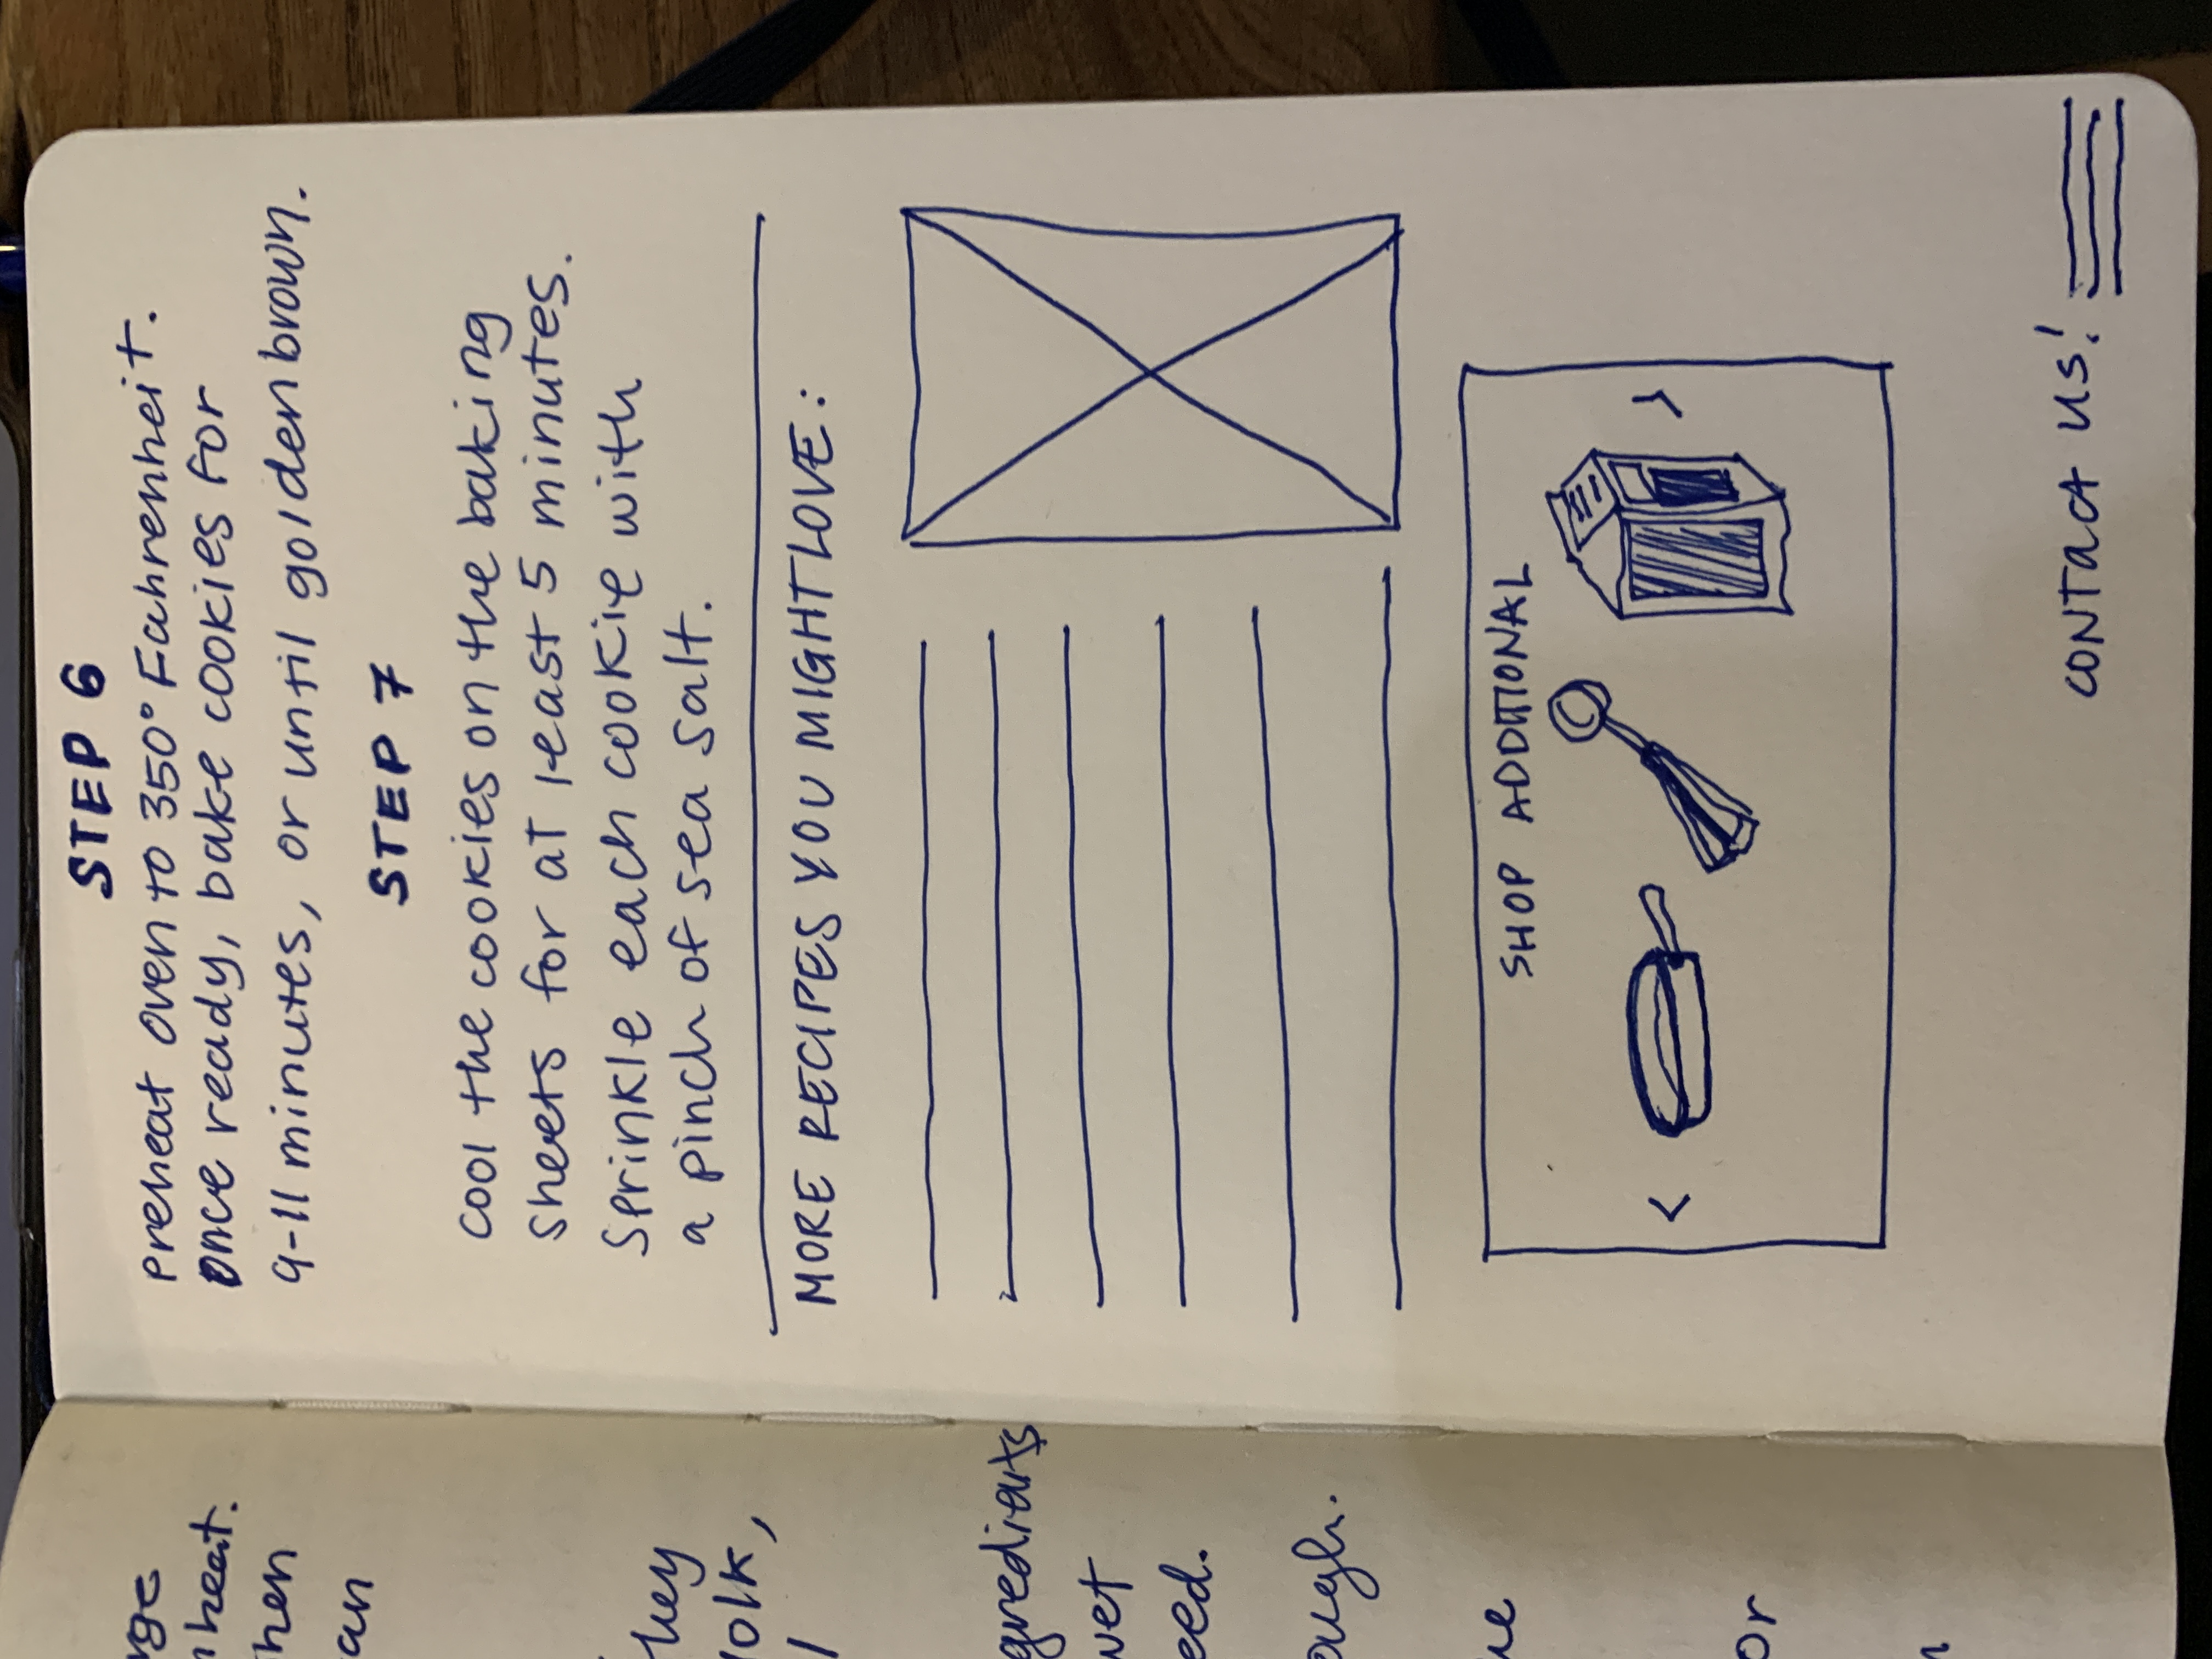 rge
heat.
hen
an
they
olk,
gredients
wet
eed.
ough.
he
or
STEP 6
Preheat oven to 350° Fahrenheit.
once ready, bake cookies for
9-11 minutes, or until golden brown.
STEP 7
Cool the cookies on the baking
sheets for at least 5 minutes.
Sprinkle each cookie with
a pinch of sea salt.
MORE RECIPES YOU MIGHT LOVE:
SHOP ADDITIONAL
<
>
contact us!